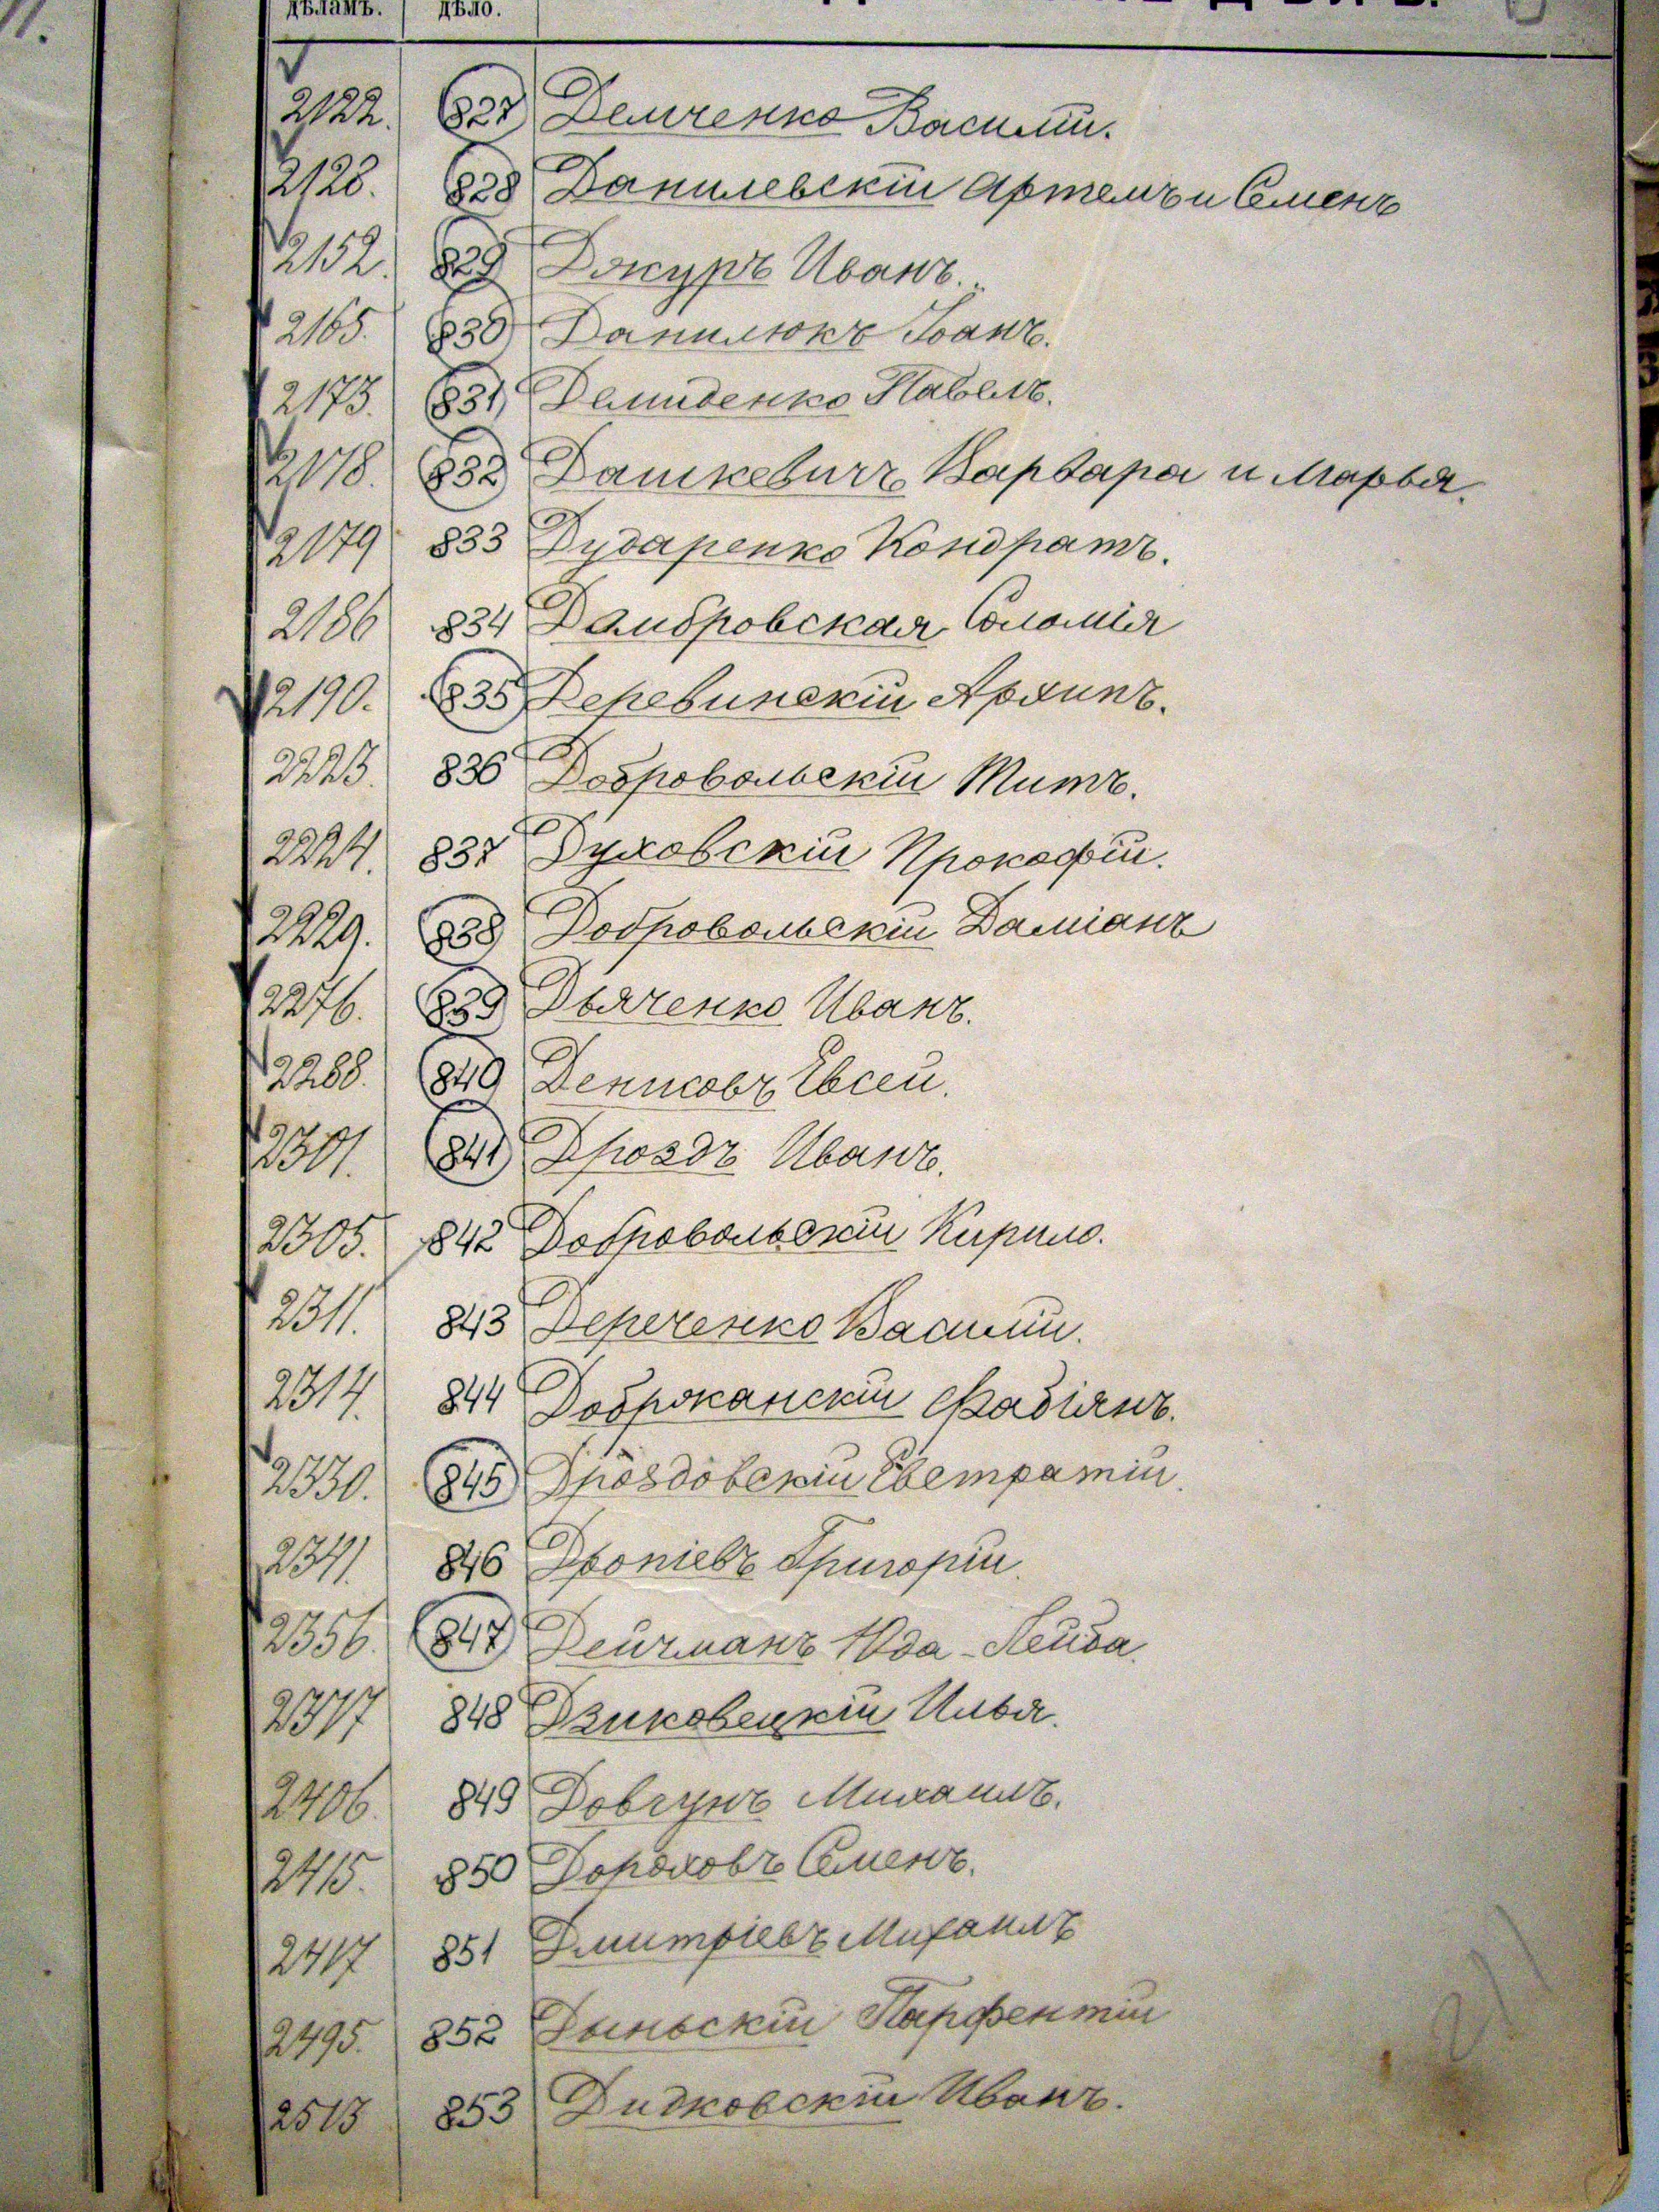 дѣламъ. дѣло.
2122. 827 Демченко Василій.
2128. 828 Данилевскій Артемъ и Семенъ
2152. 829 Джуръ Иванъ.
2165. 830 Данилюкъ Іоанъ.
2173. 831 Демиденко Павелъ.
2178. 832 Дашкевичъ Варвара и Марья.
2179 833 Дударенко Кондратъ.
2186 834 Дамбровская Соломія
2190. 835 Деревинскій Архипъ.
2223. 836 Добровольскій Титъ.
2224. 837 Духовскій Прокофій.
2229. 838 Добровольскій Даміанъ
2276. 839 Дьяченко Иванъ.
2288. 840 Денисовъ Евсей.
2301. 841 Дроздъ Иванъ.
2305. 842 Добровольскій Кирило.
2311. 843 Дереченко Василій.
2314. 844 Добржанскій Фабіянъ.
2330. 845 Дроздовскій Евстратій.
2341. 846 Дропіевъ Григорій.
2356. 847 Дейчманъ Юда-Лейба.
2377 848 Дзиковецкій Илья.
2406. 849 Довгунъ Михаилъ.
2415. 850 Дороховъ Семенъ.
2417 851 Дмитріевъ Михаилъ
2495. 852 Дыньскій Парфентій
2513 853 Дидковскій Иванъ.
211